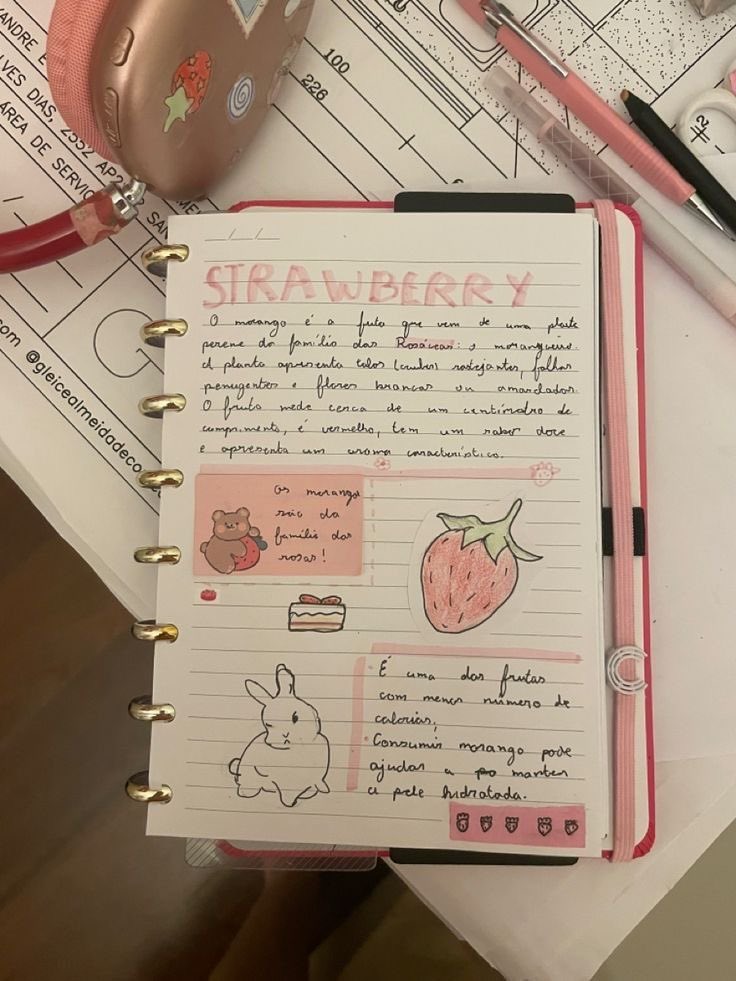 100
226
ANDRE
VES DIAS, 2552 AP
ÁREA DE SERVIÇ
SAN
com @gleicealmeidadeco
__/__/__
STRAWBERRY
O morango é a fruto que vem de uma planta
perene da família das Rosáceas: o morangueiro.
A planta apresenta talos (caules) rastejantes, folhas
penugentas e flores brancas ou amareladas.
O fruto mede cerca de um centímetro de
comprimento, é vermelho, tem um sabor doce
e apresenta um aroma característico.
os morangos
são da
família das
rosas!
É uma das frutas
com menos número de
calorias.
• Consumir morango pode
ajudar a po manter
a pele hidratada.